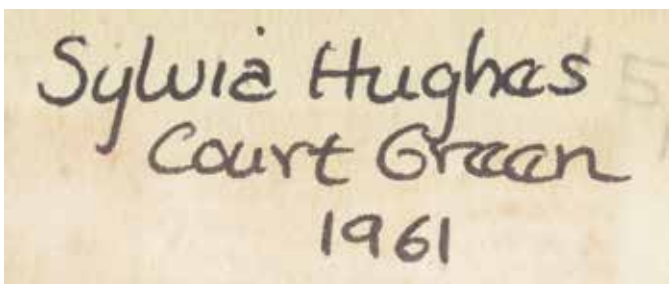 Sylvia Hughes
Court Green
1961